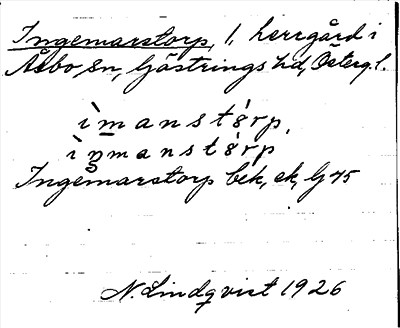 Ingemarstorp, 1, herrgård i
Åsbo sn, Göstrings hd, Österg. l.
ìmanstórp,
ìnmanstórp
Ingemarstorp bek, ek, G 45
N. Lindqvist 1926